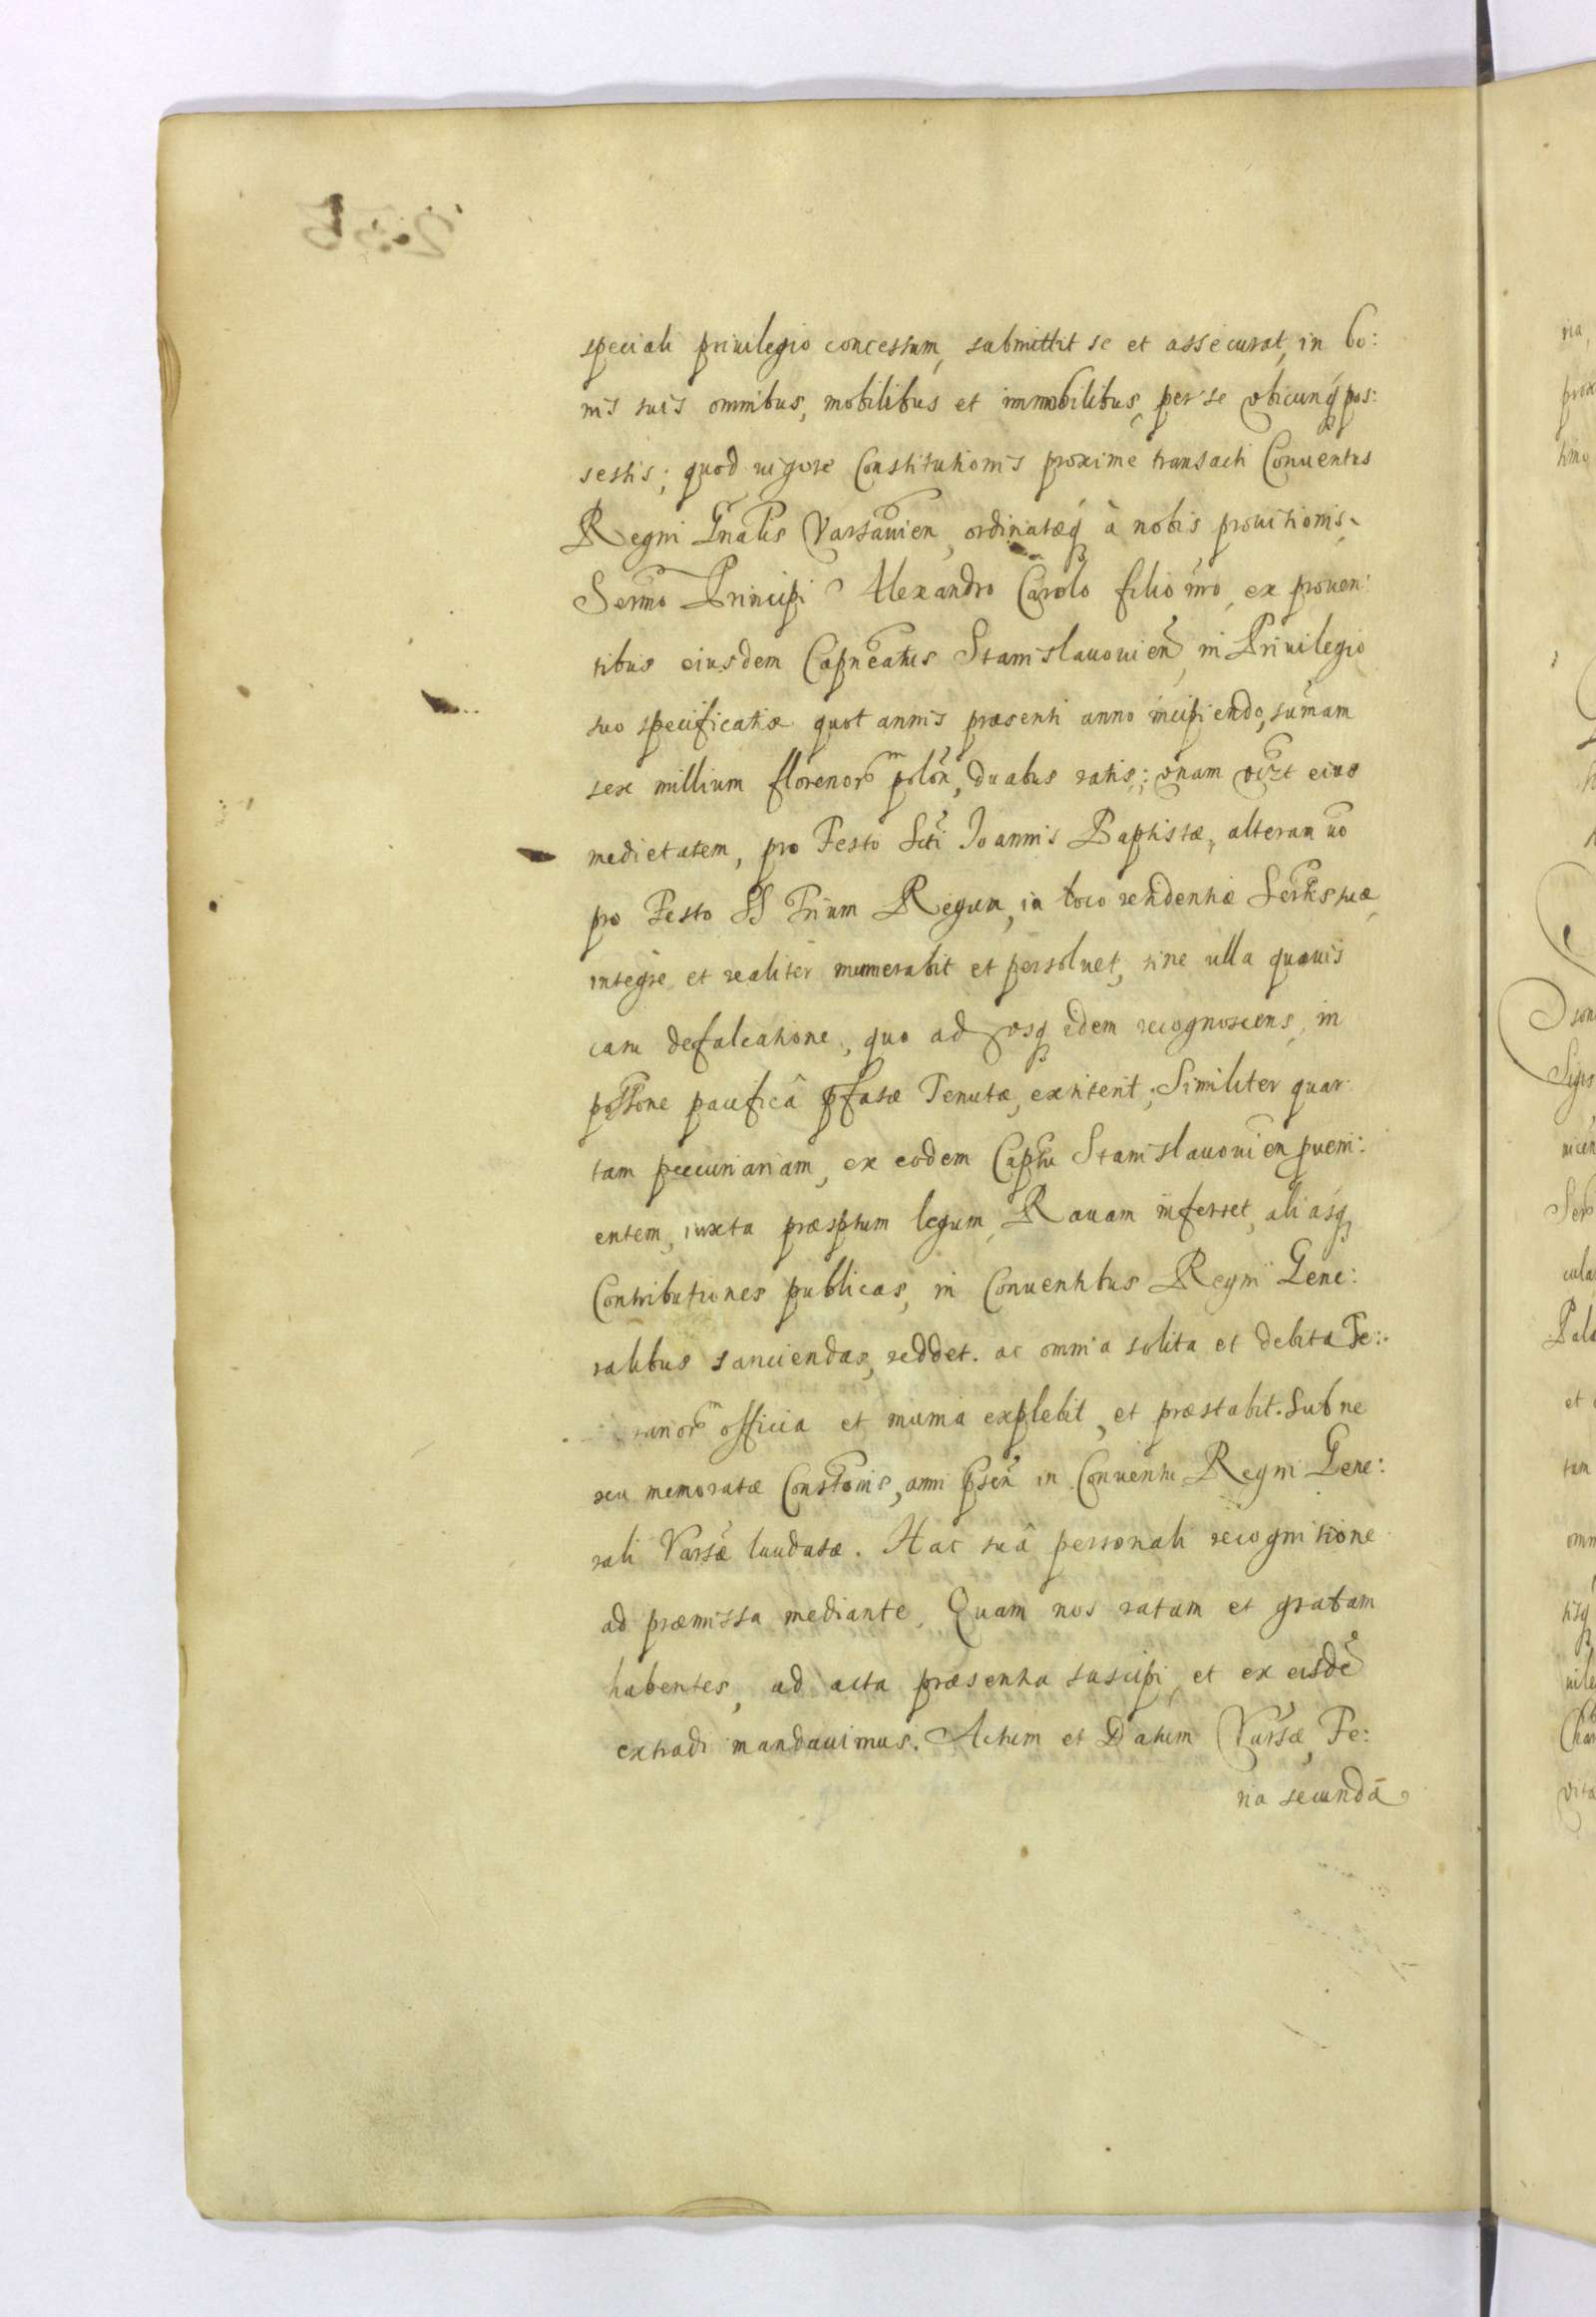 speciali priuilegio concessum, submittit se et assecurat, in bo:
nis suis omnibus, mobilibus et immobilibus, per se vbicunq pos:
sessis; quod vigore Constitutionis proxime transacti Conuentus
Regni Gnalis Varsauien, ordinatæq à nobis prouisionis,
Sermo Principi Alexandro Carolo filio nro, ex prouen:
tibus eiusdem Capneatus Stanislauouien, in Priuilegio
suo specificatis quot annis præsenti anno incipiendo, sumam
sex millium florenor polon, duabus ratis; vnam vizt eius
medietatem, pro Festo Scti Joannis Baptistæ, alteram uo
pro Festo SS Trium Regum, in loco residentiæ Sertis suæ,
integre et realiter numerabit et persoluet, sine ulla quauis
causa defalcatione, quo ad vsq idem recognoscens, in
possone pacificâ pfatæ Tenutæ, extiterit; Similiter quar
tam pecuniariam, ex eodem Captu Stanislauouien pueni:
entem, iuxta præsptum legum, Rauam inferret, aliasq
Contributiones publicas, in Conuentibus Regni Gene:
ralibus sanciendas, reddet. ac omnia solita et debita Te:
nutor officia et munia explebit, et præstabit. Sub ne
xu memoratæ Constonis, anni psen in Conuentu Regni Gene:
rali Varsæ laudatæ. Hac suâ personali recognitione
ad præmissa mediante. Quam nos ratam et gratam
habentes, ad acta præsentia suscipi, et ex eisde
extradi mandauimus. Actum et Datum Varsæ, Fe:
ria secundâ